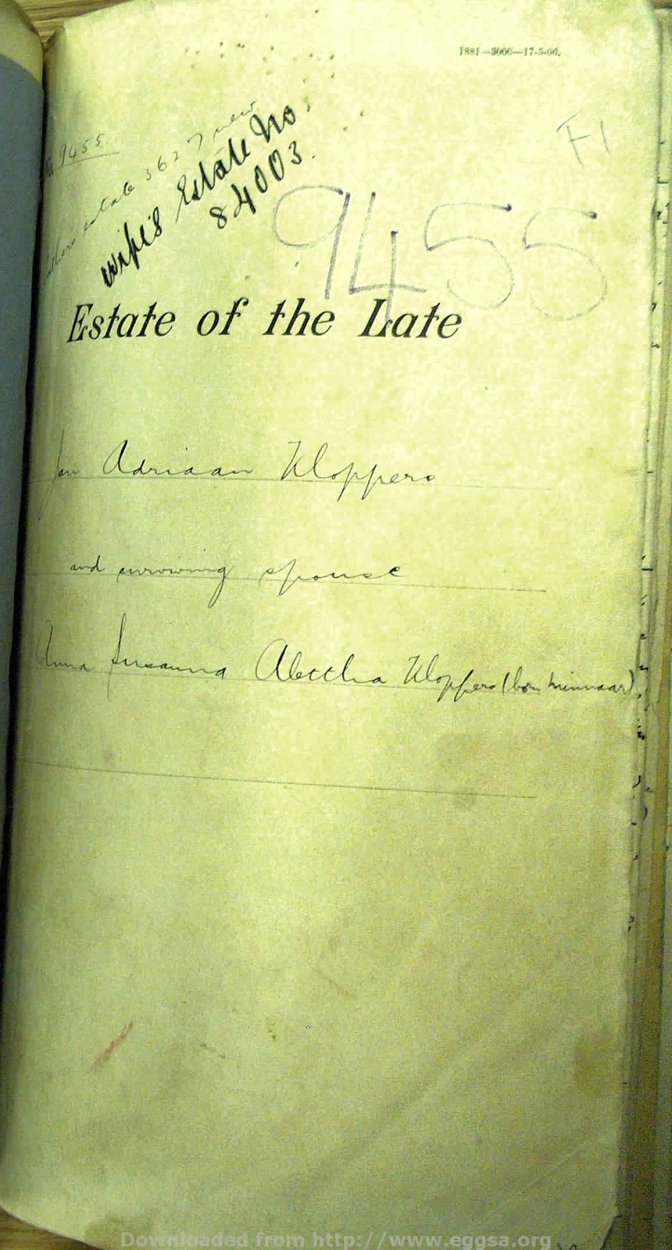 1881—3000—17-5-06.
9455
estate 3627 new
wife's Estate No
84003.
F1
9455
Estate of the Late
Jan Adriaan Kloppers
and surviving spouse
Anna Susanna Aletha Kloppers (born Minnaar)
Downloaded from http://www.eggsa.org